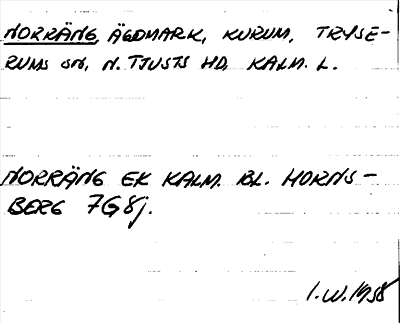 NORRÄNG, ÄGOMARK, KURUM, TRYSE-
RUMS SN, N. TJUSTS HD, KALM. L.
NORRÄNG EK KALM. BL. HORNS-
BERG 7G8j.
I.W.1958